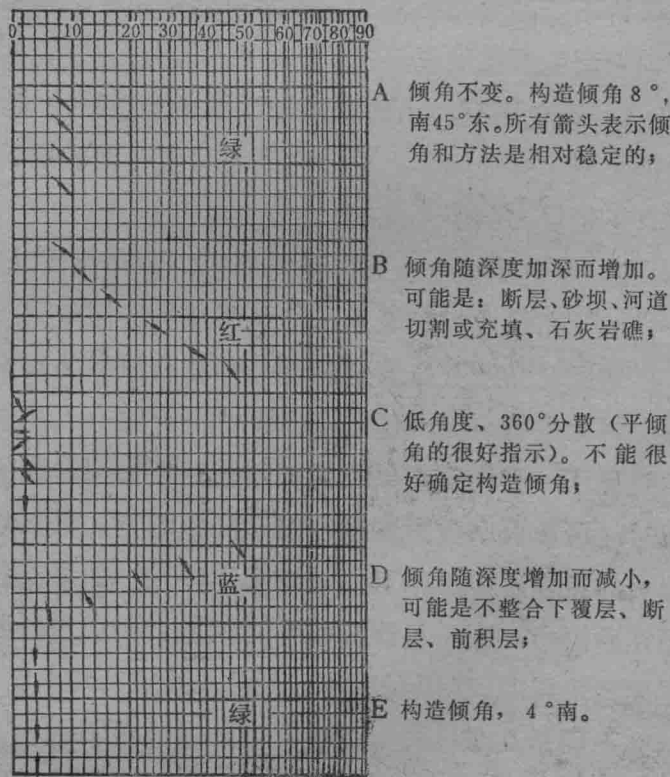 0 10 20 30 40 50 60 70 80 90
A 倾角不变。构造倾角8°,
南45°东。所有箭头表示倾
角和方法是相对稳定的;
绿
B 倾角随深度加深而增加。
可能是:断层、砂坝、河道
切割或充填、石灰岩礁;
红
C 低角度、360°分散(平倾
角的很好指示)。不能很
好确定构造倾角;
D 倾角随深度增加而减小,
可能是不整合下覆层、断
层、前积层;
蓝
E 构造倾角,4°南。
绿